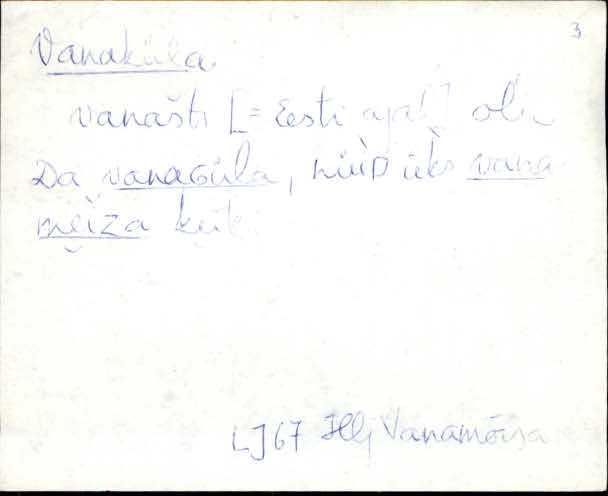 3
Vanaküla.
vanašti [= Eesti ajal] oli
Da vanaGüla, nüiD üks vana
meiža küla
LJ 67 Hlj Vanamõisa